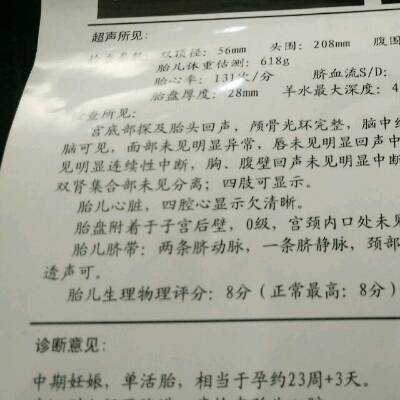 超声所见:
双顶径: 56mm 头围: 208mm 腹围
胎儿体重估测: 618g
胎心率: 131次/分 脐血流S/D:
胎盘厚度: 28mm 羊水最大深度: 4
查所见:
宫底部探及胎头回声, 颅骨光环完整, 脑中线
脑可见, 面部未见明显异常, 唇未见明显回声中
见明显连续性中断, 胸、腹壁回声未见明显中断
双肾集合部未见分离; 四肢可显示。
胎儿心脏, 四腔心显示欠清晰。
胎盘附着于子宫后壁, 0级, 宫颈内口处未见
胎儿脐带: 两条脐动脉, 一条脐静脉, 颈部
透声可。
胎儿生理物理评分: 8分 (正常最高: 8分)
诊断意见:
中期妊娠, 单活胎, 相当于孕约23周+3天。